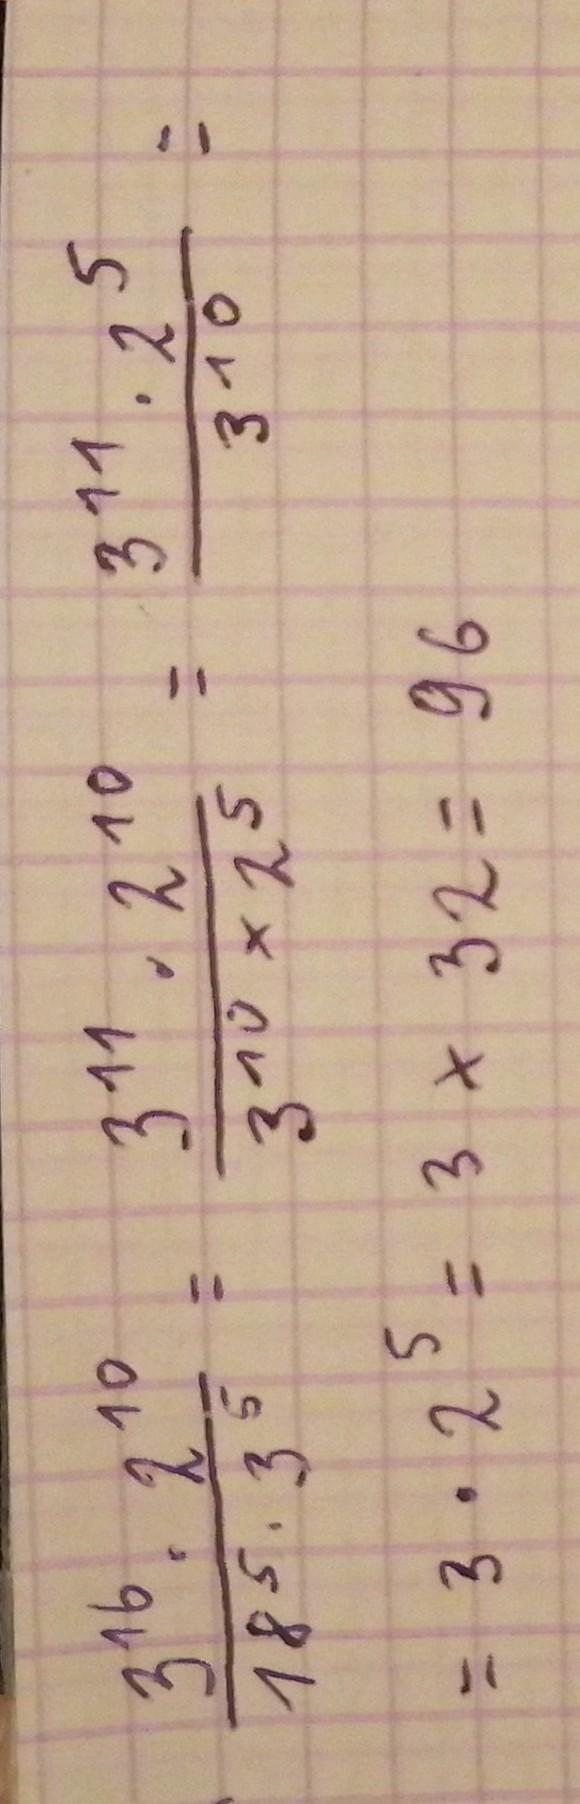 3^16 · 2^10 / 18^5 · 3^5 = 3^11 · 2^10 / 3^10 × 2^5 = 3^11 · 2^5 / 3^10 =
= 3 · 2^5 = 3 × 32 = 96